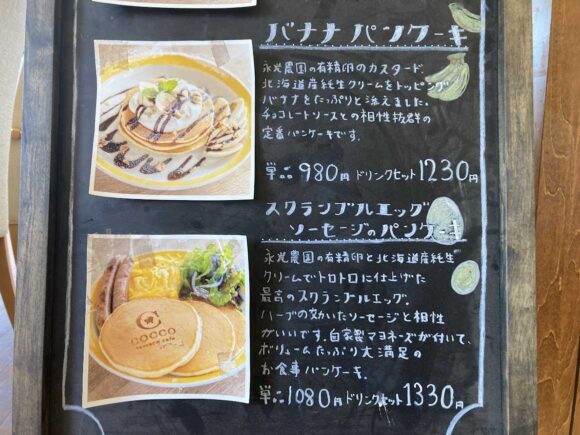 バナナパンケーキ
永光農園の有精卵のカスタード
北海道産純生クリームをトッピング
バナナをたっぷりと添えました。
チョコレートソースとの相性抜群の
定番パンケーキです。
単品 980円 ドリンクセット 1230円
スクランブルエッグ
ソーセージのパンケーキ
永光農園の有精卵と北海道産純生
クリームでトロトロに仕上げた
最高のスクランブルエッグ。
ハーブの効いたソーセージと相性
がいいです。自家製マヨネーズが付いて、
ボリュームたっぷり大満足の
お食事パンケーキ。
単品 1080円 ドリンクセット 1330円
COCCO